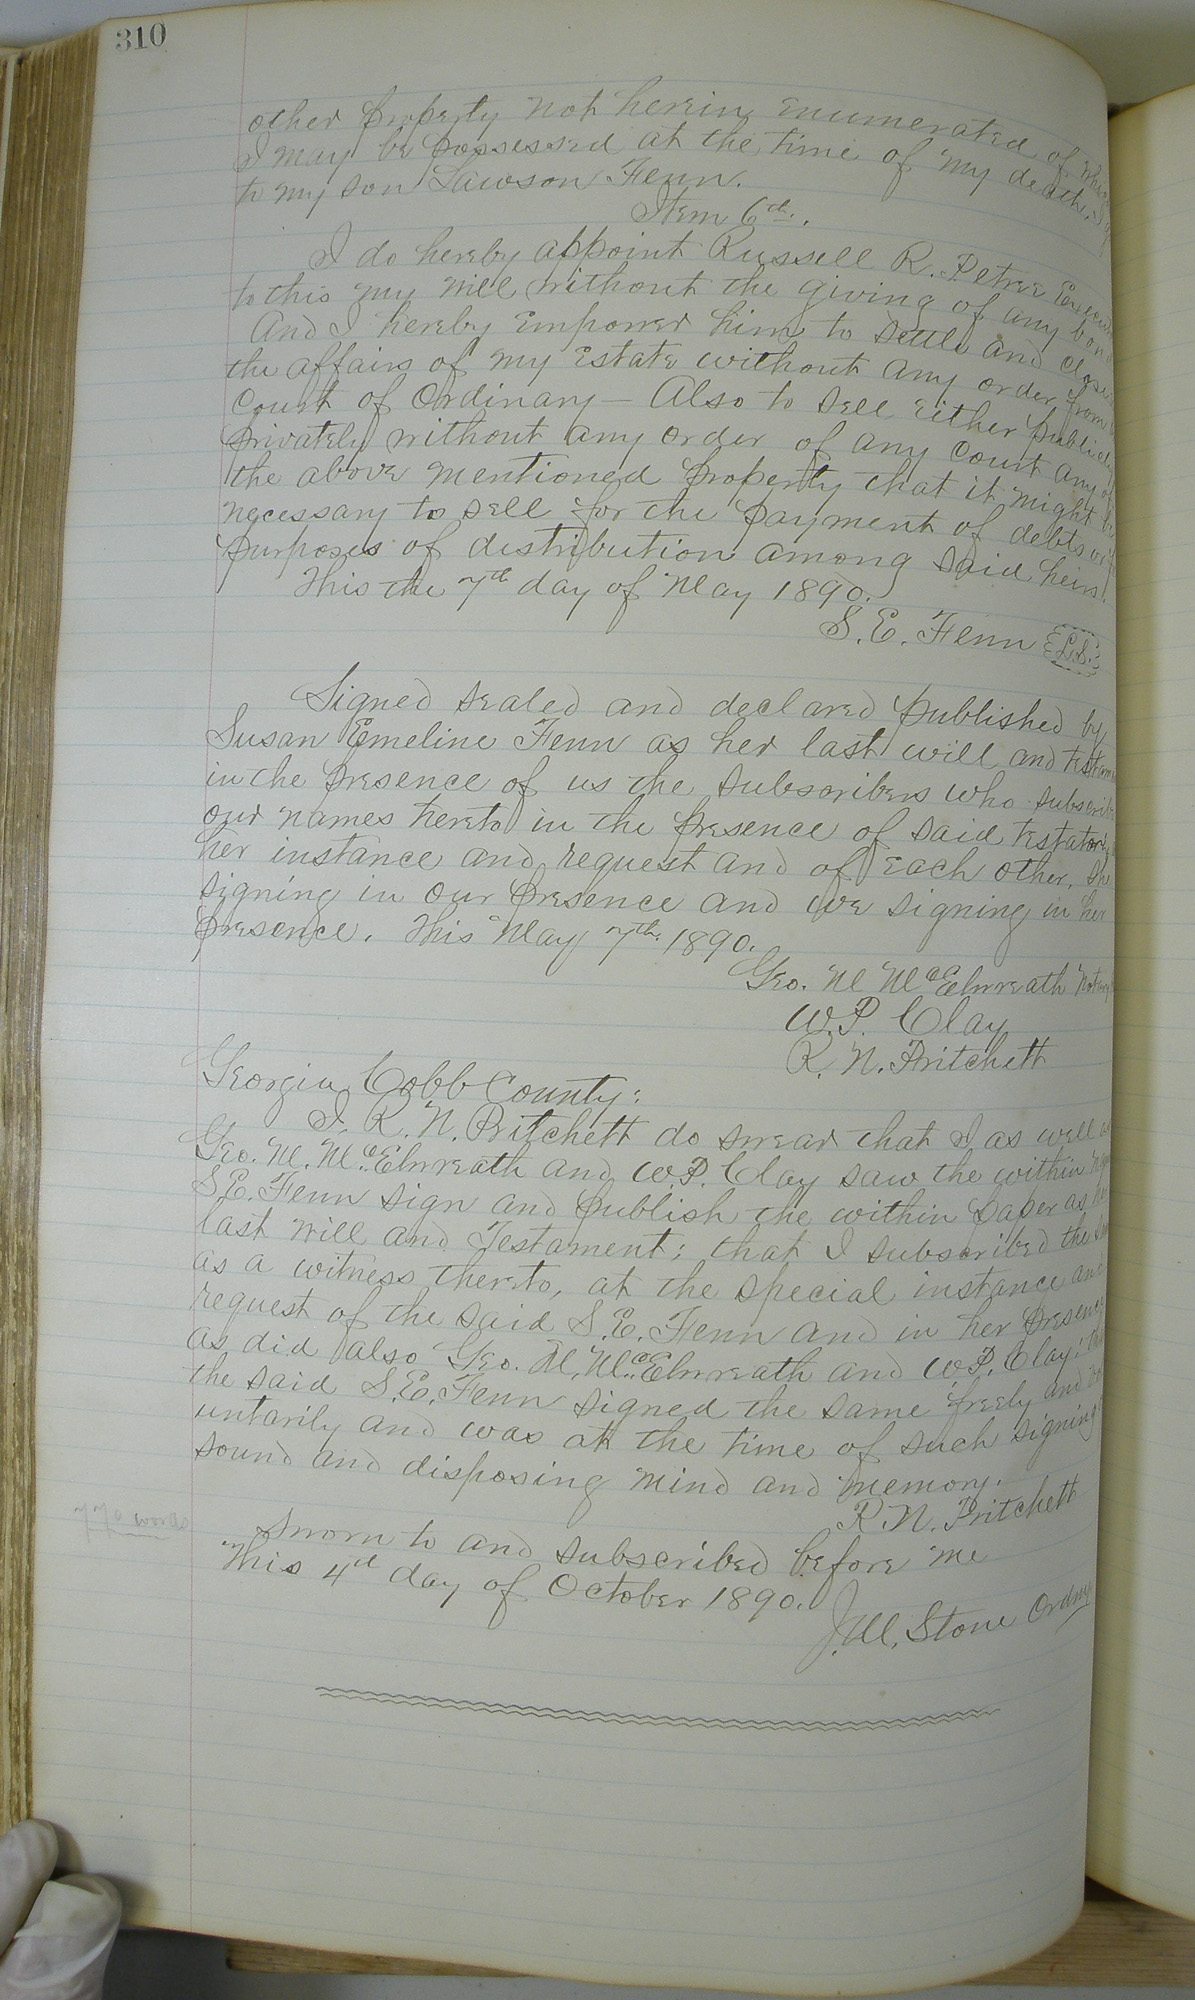 310
other property not herein enumerated of
I may be possessed at the time of my death.
to my son Lawson Fenn.
Item 6th.
I do hereby appoint Russell R. Petree
to this my will without the giving of any bond
And I hereby empower him to settle and close
the affairs of my estate without any order from
Court of Ordinary - Also to sell either publicly
privately without any order of any court any of
the above mentioned property that it might be
necessary to sell for the payment of debts or
purposes of distribution among said heirs.
This the 7th day of May 1890.
S. E. Fenn L.S.
Signed sealed and declared published by
Susan Emeline Fenn as her last will and
in the presence of us the subscribers who
our names hereto in the presence of said
her instance and request and of each other. She
signing in our presence and we signing in her
presence. This May 7th. 1890.
Geo. M McElwreath
W.P. Clay
R. N. Pritchett
Georgia Cobb County:
I. R. N. Pritchett do swear that I as well
Geo. M. McElwreath and W.P. Clay saw the within
S.E. Fenn sign and publish the within paper as
last will and Testament; that I subscribed the
as a witness thereto, at the special instance and
request of the said S. E. Fenn and in her presence
as did also Geo. M. McElwreath and W.P. Clay;
the said S.E. Fenn signed the same freely and
untarily and was at the time of such signing
sound and disposing mind and memory.
R. N. Pritchett
770 words
Sworn to and subscribed before me
This 4th day of October 1890.
J. M. Stone Ordny